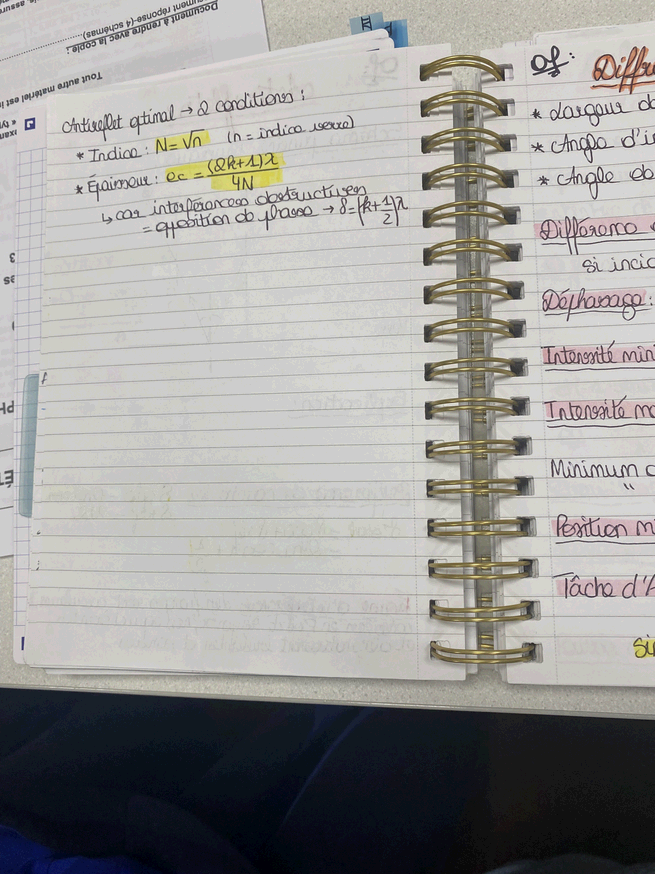 Document à rendre avec la copie :
Document réponse-(4-schémas)
Tout autre matériel est
Antireflet optimal → 2 conditions :
* Indice : N = √n (n = indice verre)
* Épaisseur : ec = (2k+1)λ / 4N
↳ car interférences destructives
= opposition de phase → δ = (k + 1/2)λ
OF :
Diffr
* Largeur d
* Angle d'i
* Angle ob
Différence
si incid
Déphasage :
Intensité mini
Intensité ma
Minimum d
"
Position mi
Tâche d'A
sin